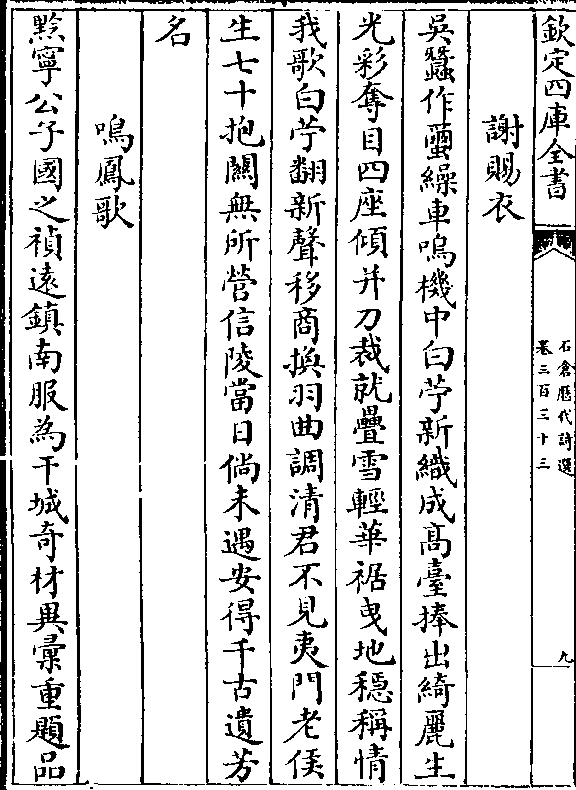 欽定四庫全書
石倉歷代詩選
卷三百三十三
九
謝賜衣
吳蠶作繭繰車鳴機中白苧新織成高臺捧出綺麗生
光彩奪目四座傾并刀裁就疊雪輕華裾曳地穩稱情
我歌白苧翻新聲移商換羽曲調清君不見夷門老侯
生七十抱關無所營信陵當日倘未遇安得千古遺芳
名
鳴鳳歌
黔寧公子國之禎遠鎮南服為干城奇材異彙重題品